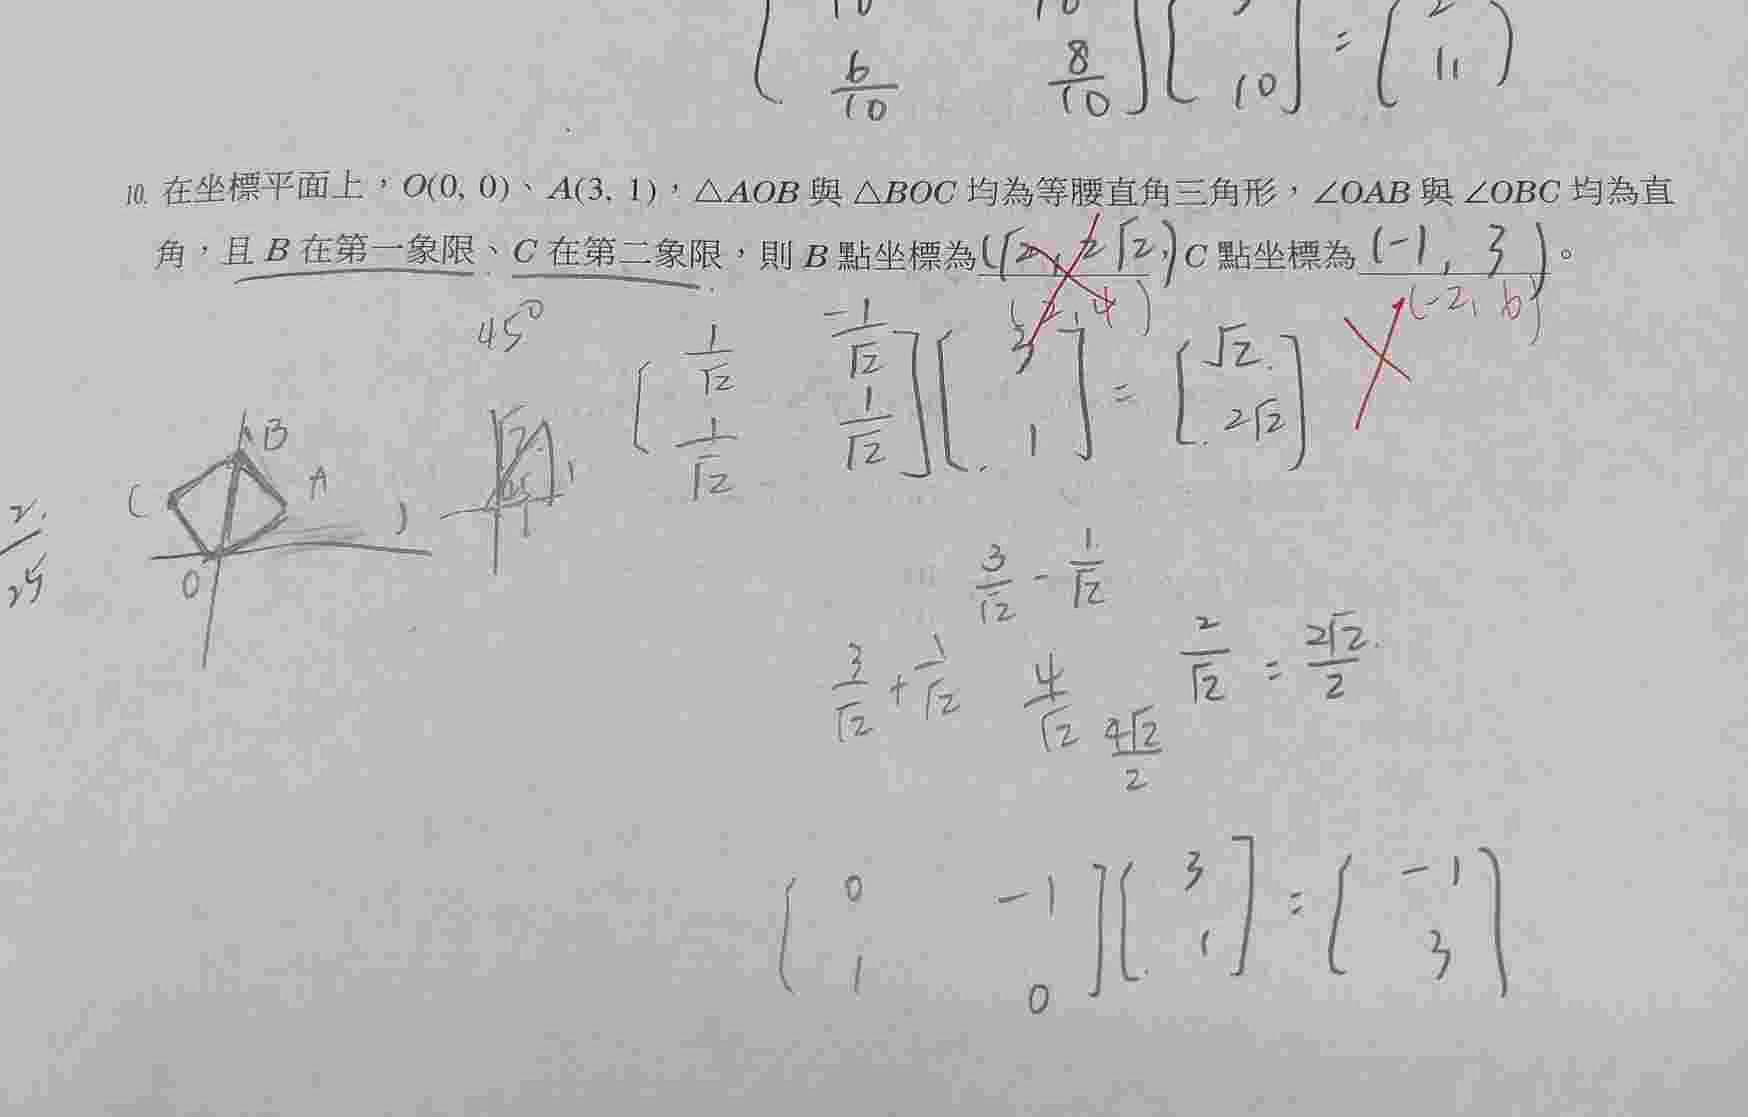 10 10 3 2
6/10 8/10 10 = 11
10. 在坐標平面上，O(0, 0)、A(3, 1)，△AOB 與 △BOC 均為等腰直角三角形，∠OAB 與 ∠OBC 均為直
角，且 B 在第一象限、C 在第二象限，則 B 點坐標為 (√2, 2√2) C 點坐標為 (-1, 3)。
(2, 4) (-2, 6)
45°
[1/√2 -1/√2] [3] = [√2]
[1/√2 1/√2] [1] = [2√2]
B
C A
O
√2 1
45 1
2
25
3/√2 - 1/√2
3/√2 + 1/√2 4/√2 4√2/2 2/√2 = 2√2/2
[0 -1] [3] = [-1]
[1 0] [1] = [3]